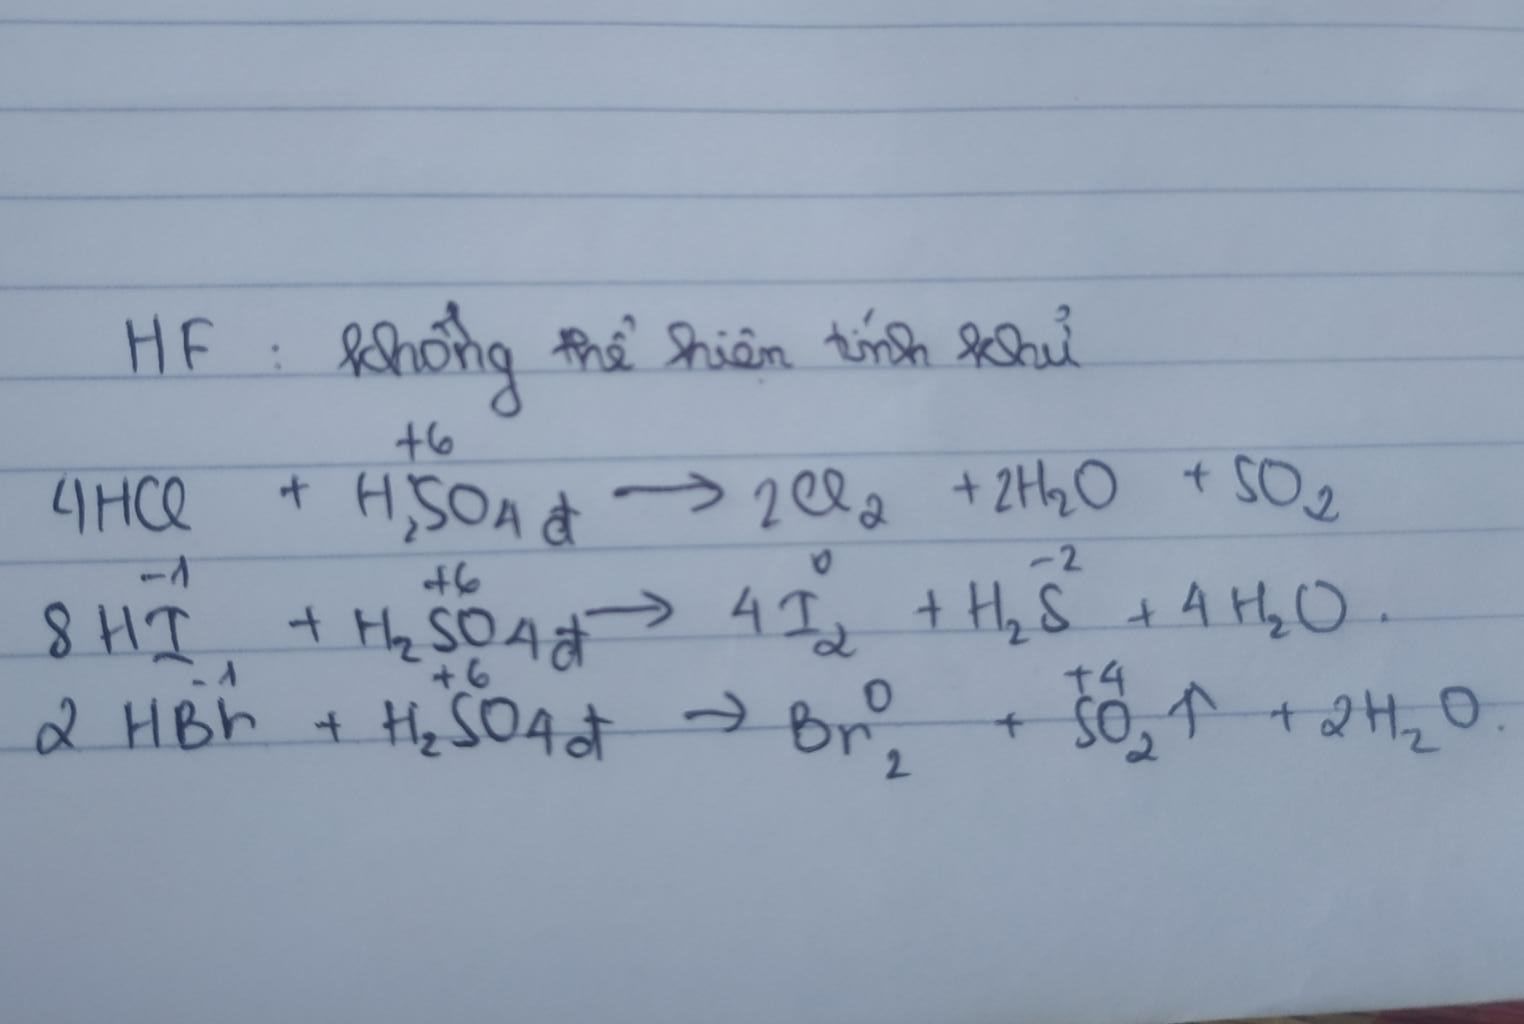 HF : không thể hiện tính khử
+6
4HCl + H₂SO₄ đ → 2Cl₂ + 2H₂O + SO₂
-1 +6 0 -2
8HI + H₂SO₄ đ → 4I₂ + H₂S + 4H₂O.
-1 +6 0 +4
2HBr + H₂SO₄ đ → Br₂ + SO₂↑ + 2H₂O.